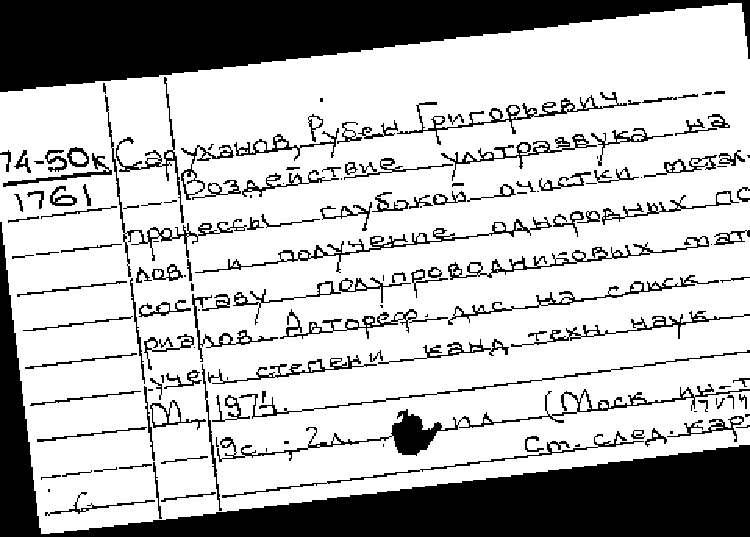 74-50к
1761
Саруханов, Рубен Григорьевич
Воздействие ультразвука на
процессы глубокой очистки метал-
лов и получение однородных по
составу полупроводниковых мате
риалов. Автореф. дис. на соиск
учен степени канд. техн. наук.
М., 1974.
19с.; 2л. пл (Моск. ин-т
См. след. кар